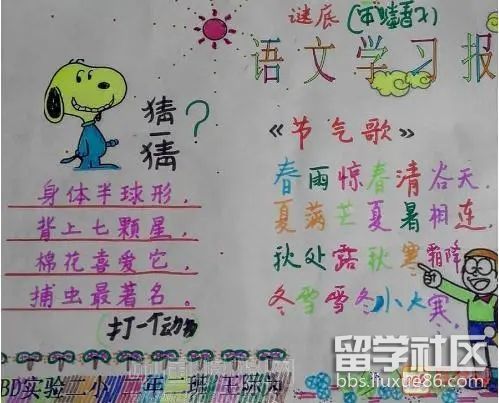 谜底
语文学习报
猜一猜?
身体半球形，
背上七颗星，
棉花喜爱它，
捕虫最著名。
打一个动物
《节气歌》
春雨惊春清谷天，
夏满芒夏暑相连，
秋处露秋寒霜降，
冬雪雪冬小大寒，
BD实验二小 二年二班
留学社区
bbs.liuxue86.com